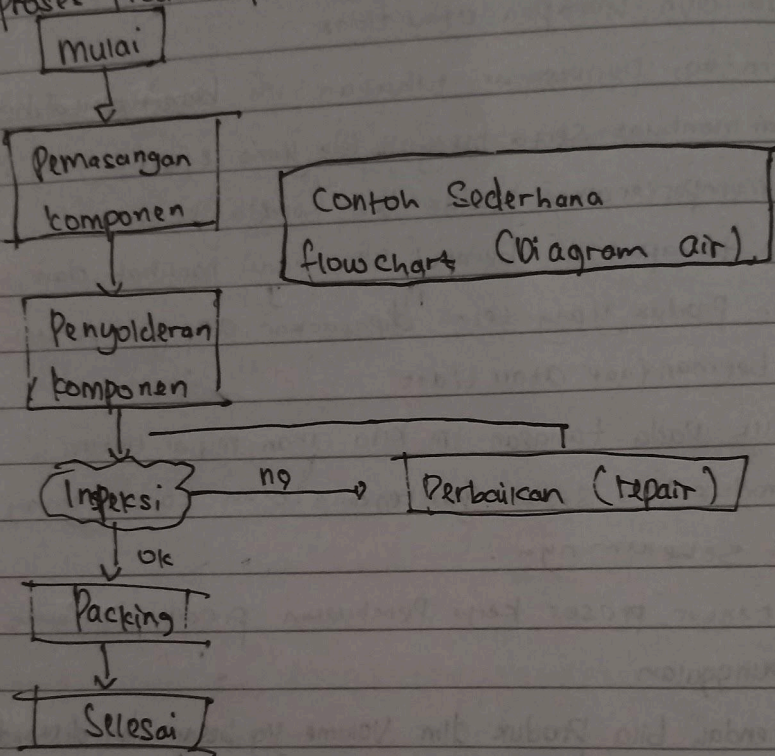 Proses
mulai
Pemasangan
komponen
Contoh Sederhana
flowchart (Diagram air)
Penyolderan
komponen
Inpeksi
ng
Perbaikan (repair)
OK
Packing
Selesai